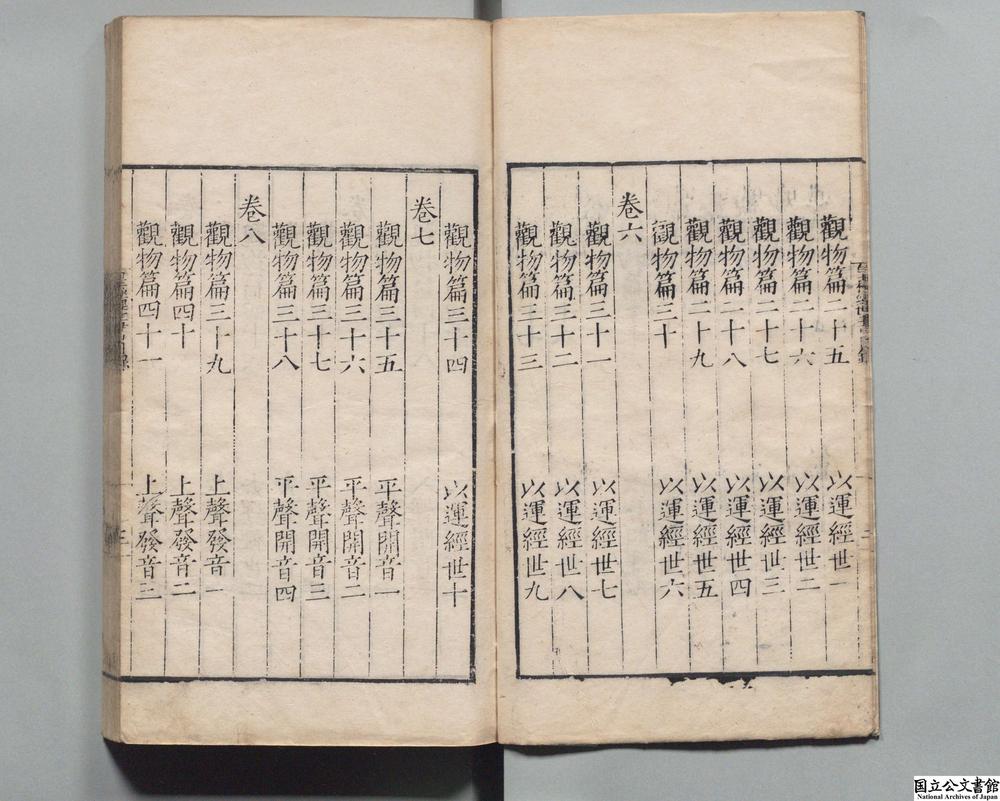 觀物篇二十五 以運經世一
觀物篇二十六 以運經世二
觀物篇二十七 以運經世三
觀物篇二十八 以運經世四
觀物篇二十九 以運經世五
觀物篇三十 以運經世六
卷六
觀物篇三十一 以運經世七
觀物篇三十二 以運經世八
觀物篇三十三 以運經世九
觀物篇三十四 以運經世十
卷七
觀物篇三十五 平聲開音一
觀物篇三十六 平聲開音二
觀物篇三十七 平聲開音三
觀物篇三十八 平聲開音四
卷八
觀物篇三十九 上聲發音一
觀物篇四十 上聲發音二
觀物篇四十一 上聲發音三
国立公文書館
National Archives of Japan